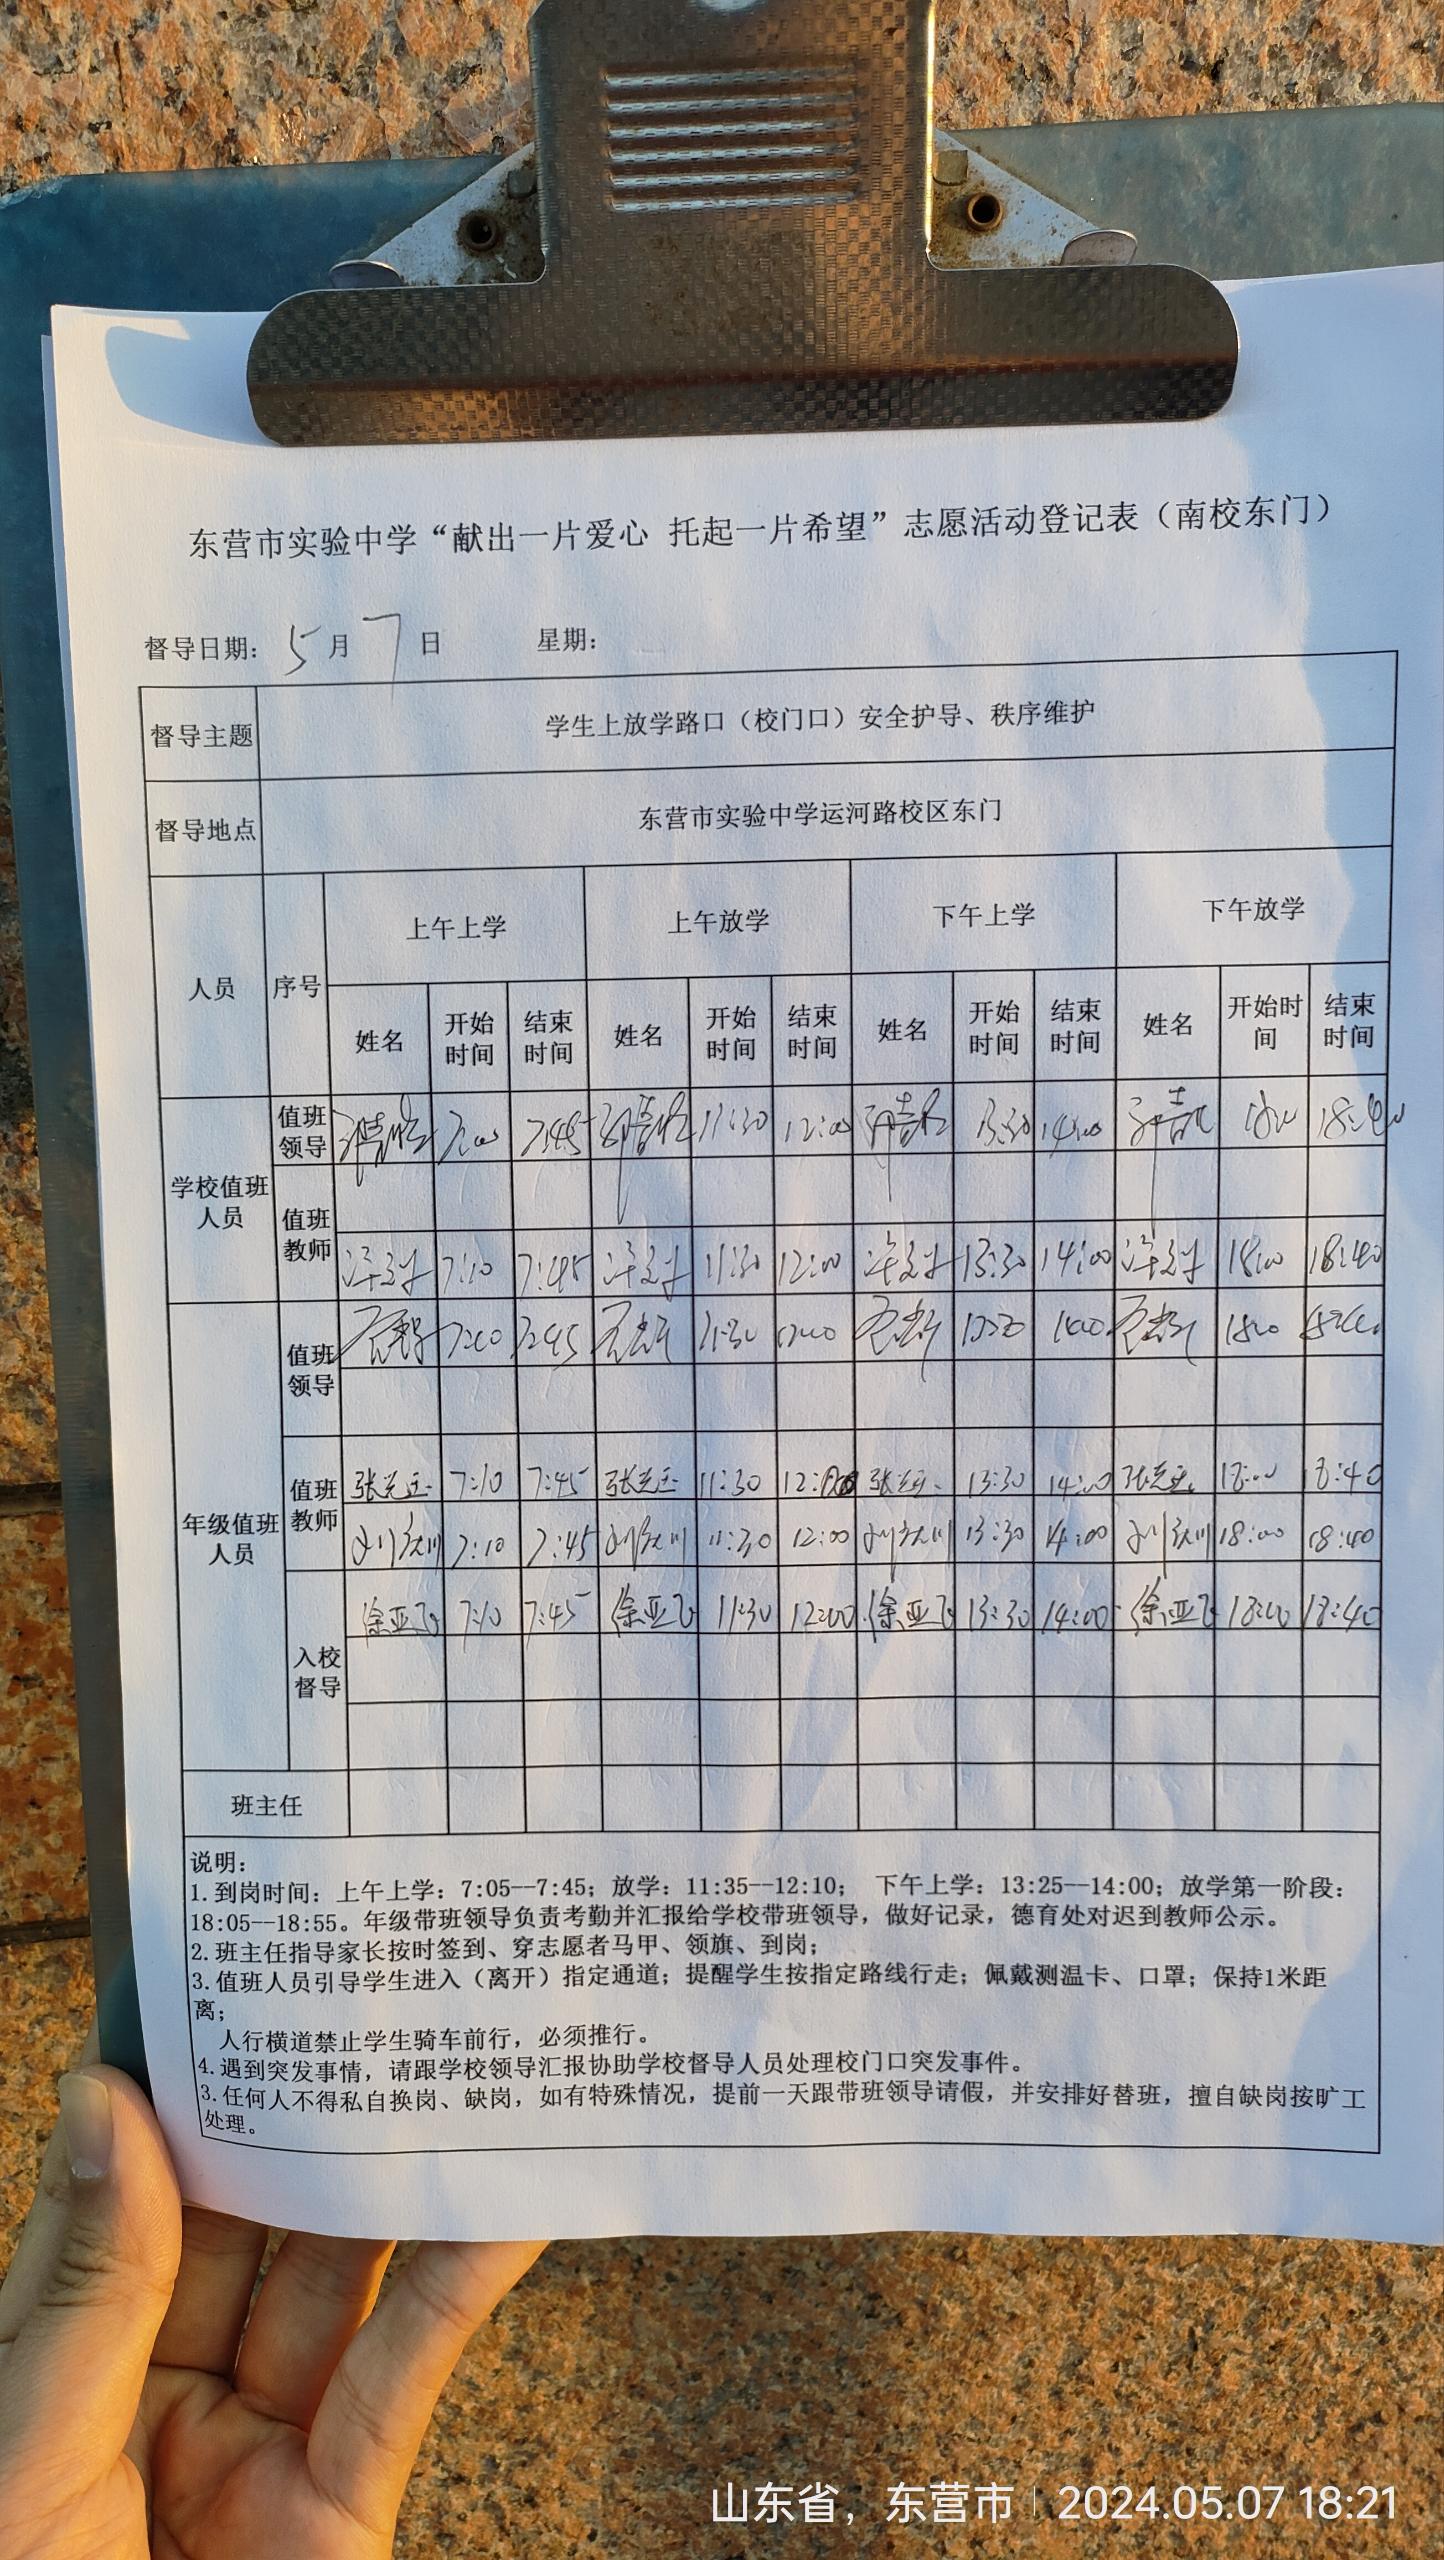 东营市实验中学“献出一片爱心 托起一片希望”志愿活动登记表（南校东门）
督导日期： 5 月 7 日 星期：
督导主题 学生上放学路口（校门口）安全护导、秩序维护
督导地点 东营市实验中学运河路校区东门
人员 序号 上午上学 上午放学 下午上学 下午放学
姓名 开始时间 结束时间 姓名 开始时间 结束时间 姓名 开始时间 结束时间 姓名 开始时间 结束时间
学校值班人员
值班领导 7:00 7:45 11:30 12:00 13:30 14:00 18:00 18:40
值班教师 7:10 7:45 11:30 12:00 13:30 14:00 18:00 18:40
年级值班人员
值班领导
值班教师 7:10 7:45 11:30 13:30 14:00 18:00 18:40
7:10 7:45 11:30 12:00 13:30 14:00 18:00 18:40
入校督导 徐亚飞 7:10 7:45 徐亚飞 11:30 12:00 徐亚飞 13:30 14:00 徐亚飞 18:00 18:40
班主任
说明：
1.到岗时间：上午上学：7:05--7:45；放学：11:35--12:10； 下午上学：13:25--14:00；放学第一阶段：
18:05--18:55。年级带班领导负责考勤并汇报给学校带班领导，做好记录，德育处对迟到教师公示。
2.班主任指导家长按时签到、穿志愿者马甲、领旗、到岗；
3.值班人员引导学生进入（离开）指定通道；提醒学生按指定路线行走；佩戴测温卡、口罩；保持1米距
离；
人行横道禁止学生骑车前行，必须推行。
4.遇到突发事情，请跟学校领导汇报协助学校督导人员处理校门口突发事件。
3.任何人不得私自换岗、缺岗，如有特殊情况，提前一天跟带班领导请假，并安排好替班，擅自缺岗按旷工
处理。
山东省，东营市 2024.05.07 18:21